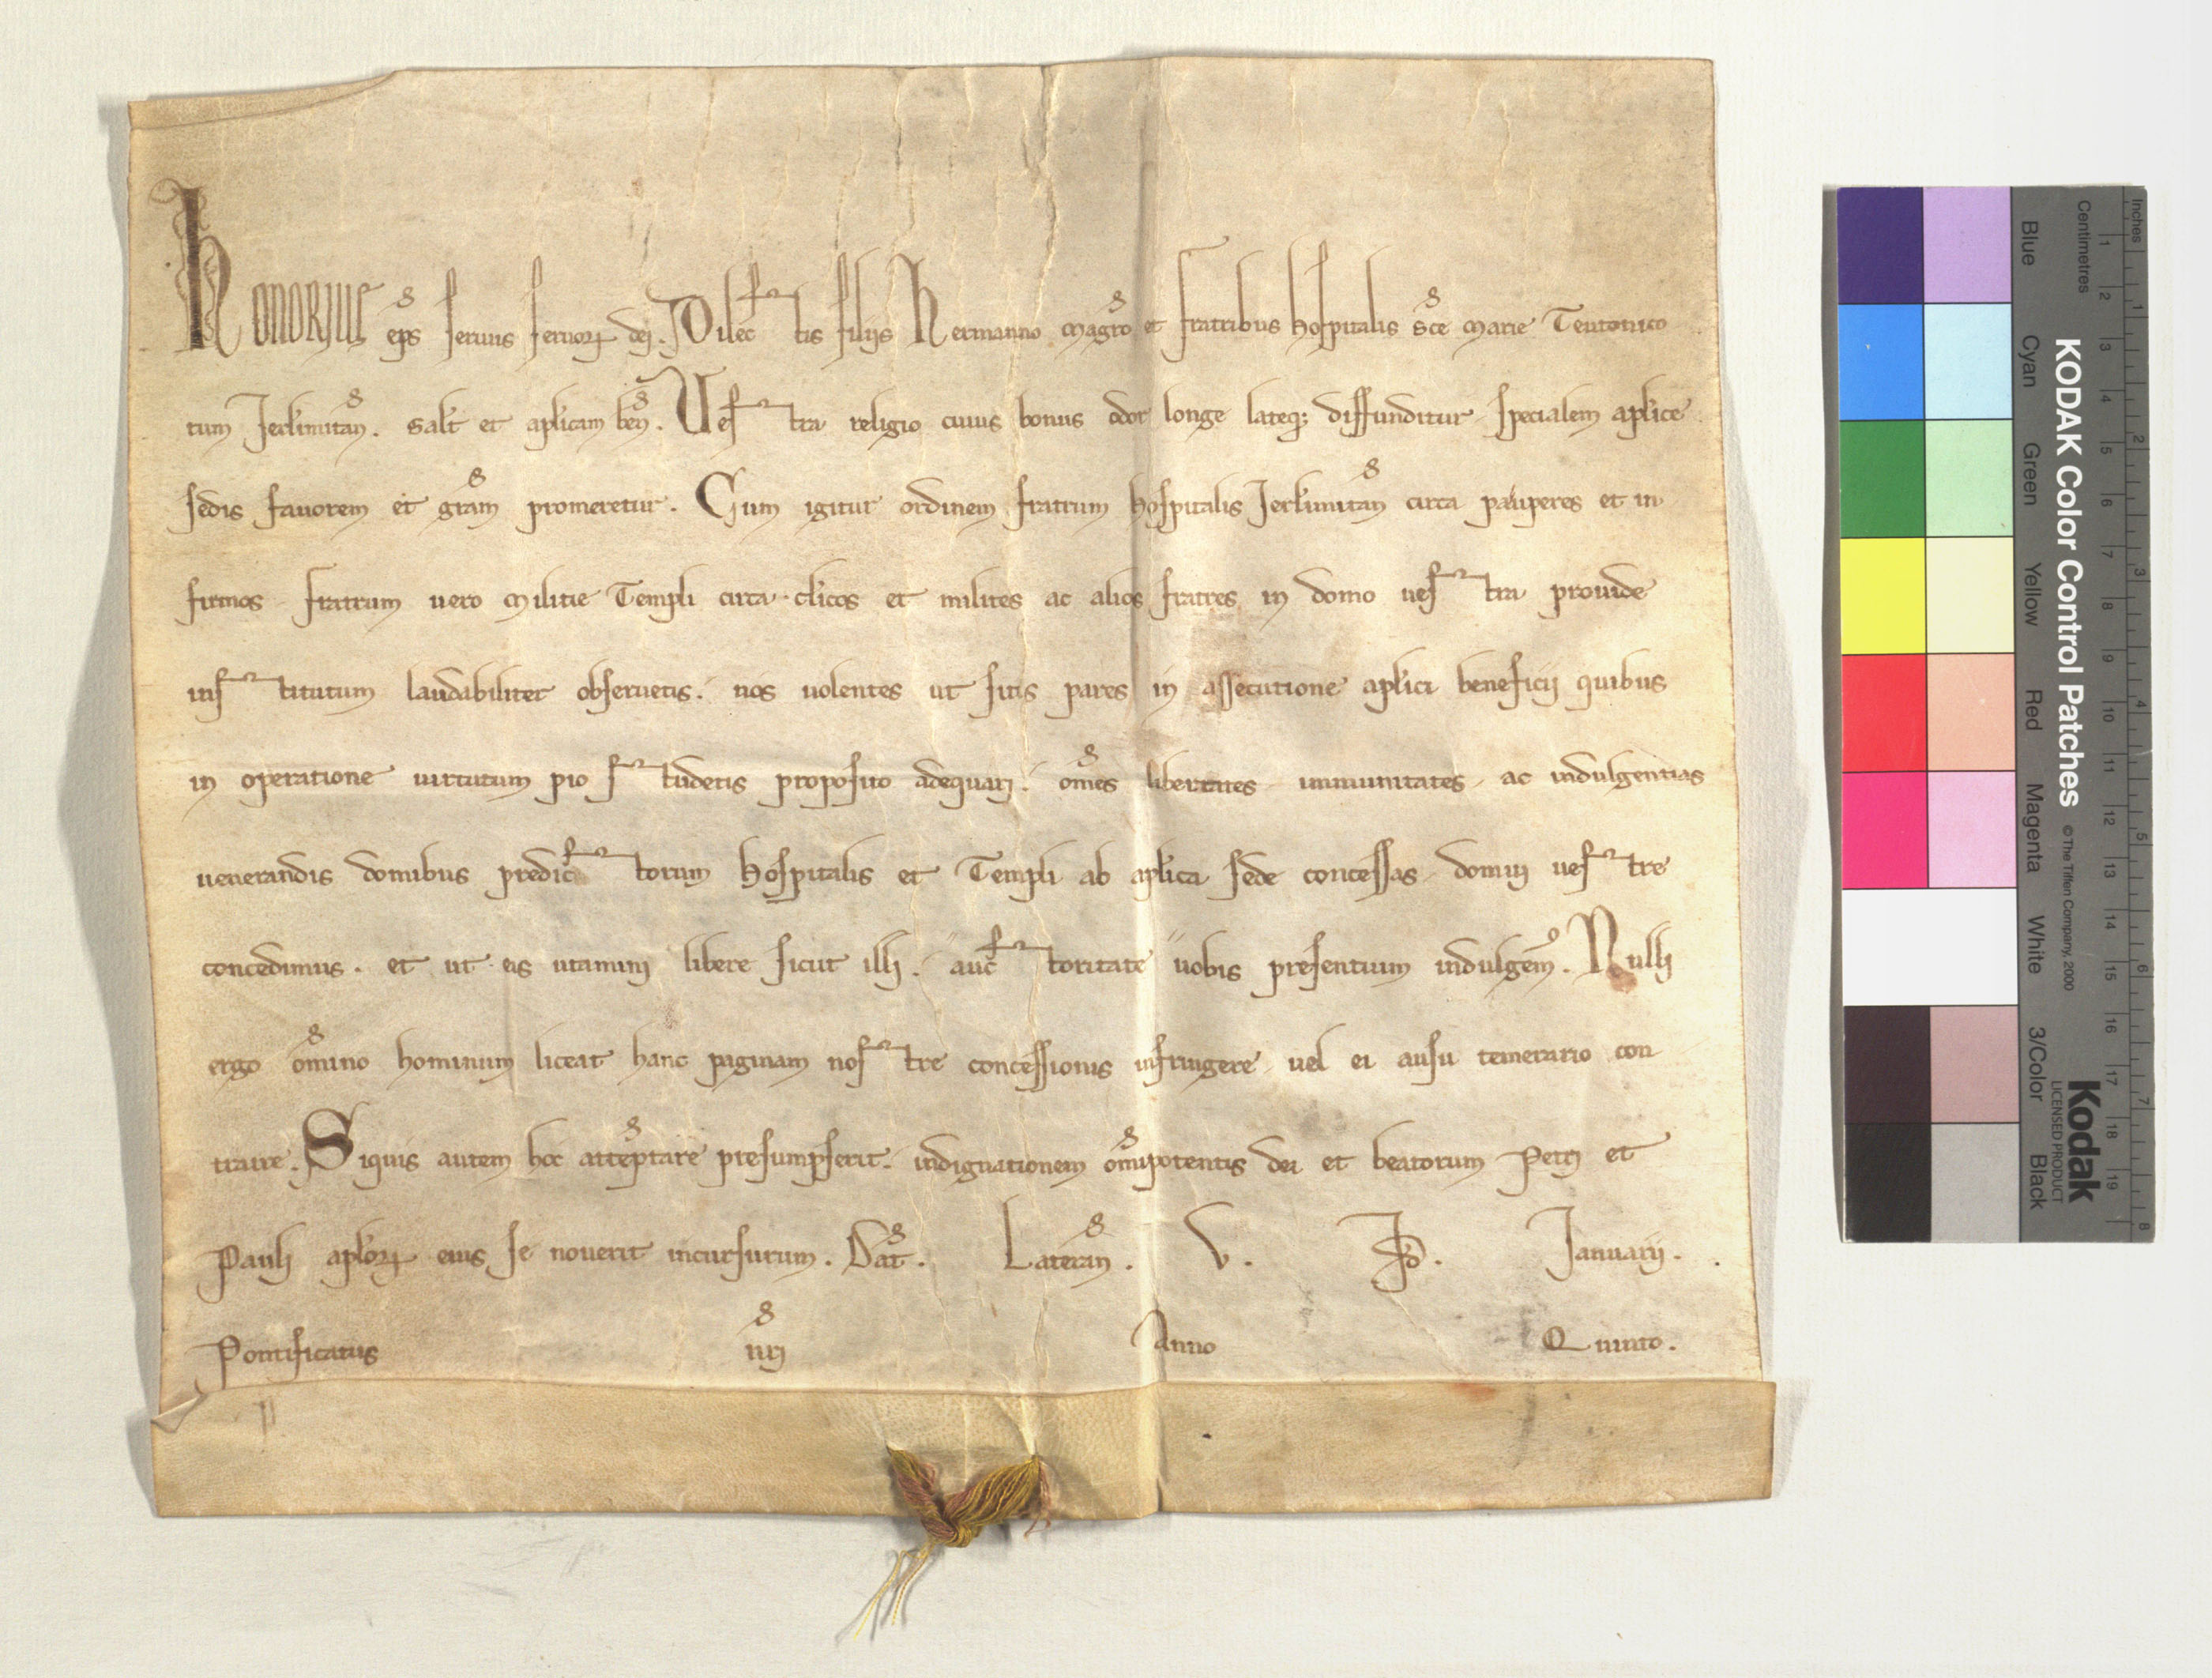 HONORIUS ep̄s seruus seruoꝝ dei. Dilectis filiis Hermanno magr̄o et fratribus hospitalis sc̄e Marie Teutonico
rum Jerłimitan̄. Salt̄ et aplicam ben̄. Vestra religio cuius bonus odor longe lateq; diffunditur specialem aplice
sedis fauorem et gr̄am promeretur. Cum igitur ordinem fratrum hospitalis Jerłimitan̄ circa pauperes et in
firmos fratrum uero Militie Templi circa clicos et milites ac alios fratres in domo uestra prouide
institutum laudabiliter obseruetis. nos uolentes ut sitis pares in assecutione aplici beneficij quibus
in operatione uirtutum pio studetis proposito adequari. om̄es libertates immunitates ac indulgentias
uenerandis domibus predictorum Hospitalis et Templi ab aplica sede concessas domui uestre
concedimus. et ut eis utamini libere sicut illi. "auctoritate "uobis presentium indulgem⁹. Nulli
ergo om̄ino hominum liceat hanc paginam nostre concessionis infringere uel ei ausu temerario con
traire. Siquis autem hoc attēptare presumpserit. indignationem om̄ipotentis dei et beatorum Petri et
Pauli aploꝝ eius se nouerit incursurum. Dat̄. Lateran̄. V. Id. Januarij.
Pontificatus nr̄i Anno Quinto.
KODAK Color Control Patches
© The Tiffen Company, 2000
Kodak
LICENSED PRODUCT
Inches 1 2 3 4 5 6 7 8
Centimetres 1 2 3 4 5 6 7 8 9 10 11 12 13 14 15 16 17 18 19
Blue Cyan Green Yellow Red Magenta White 3/Color Black